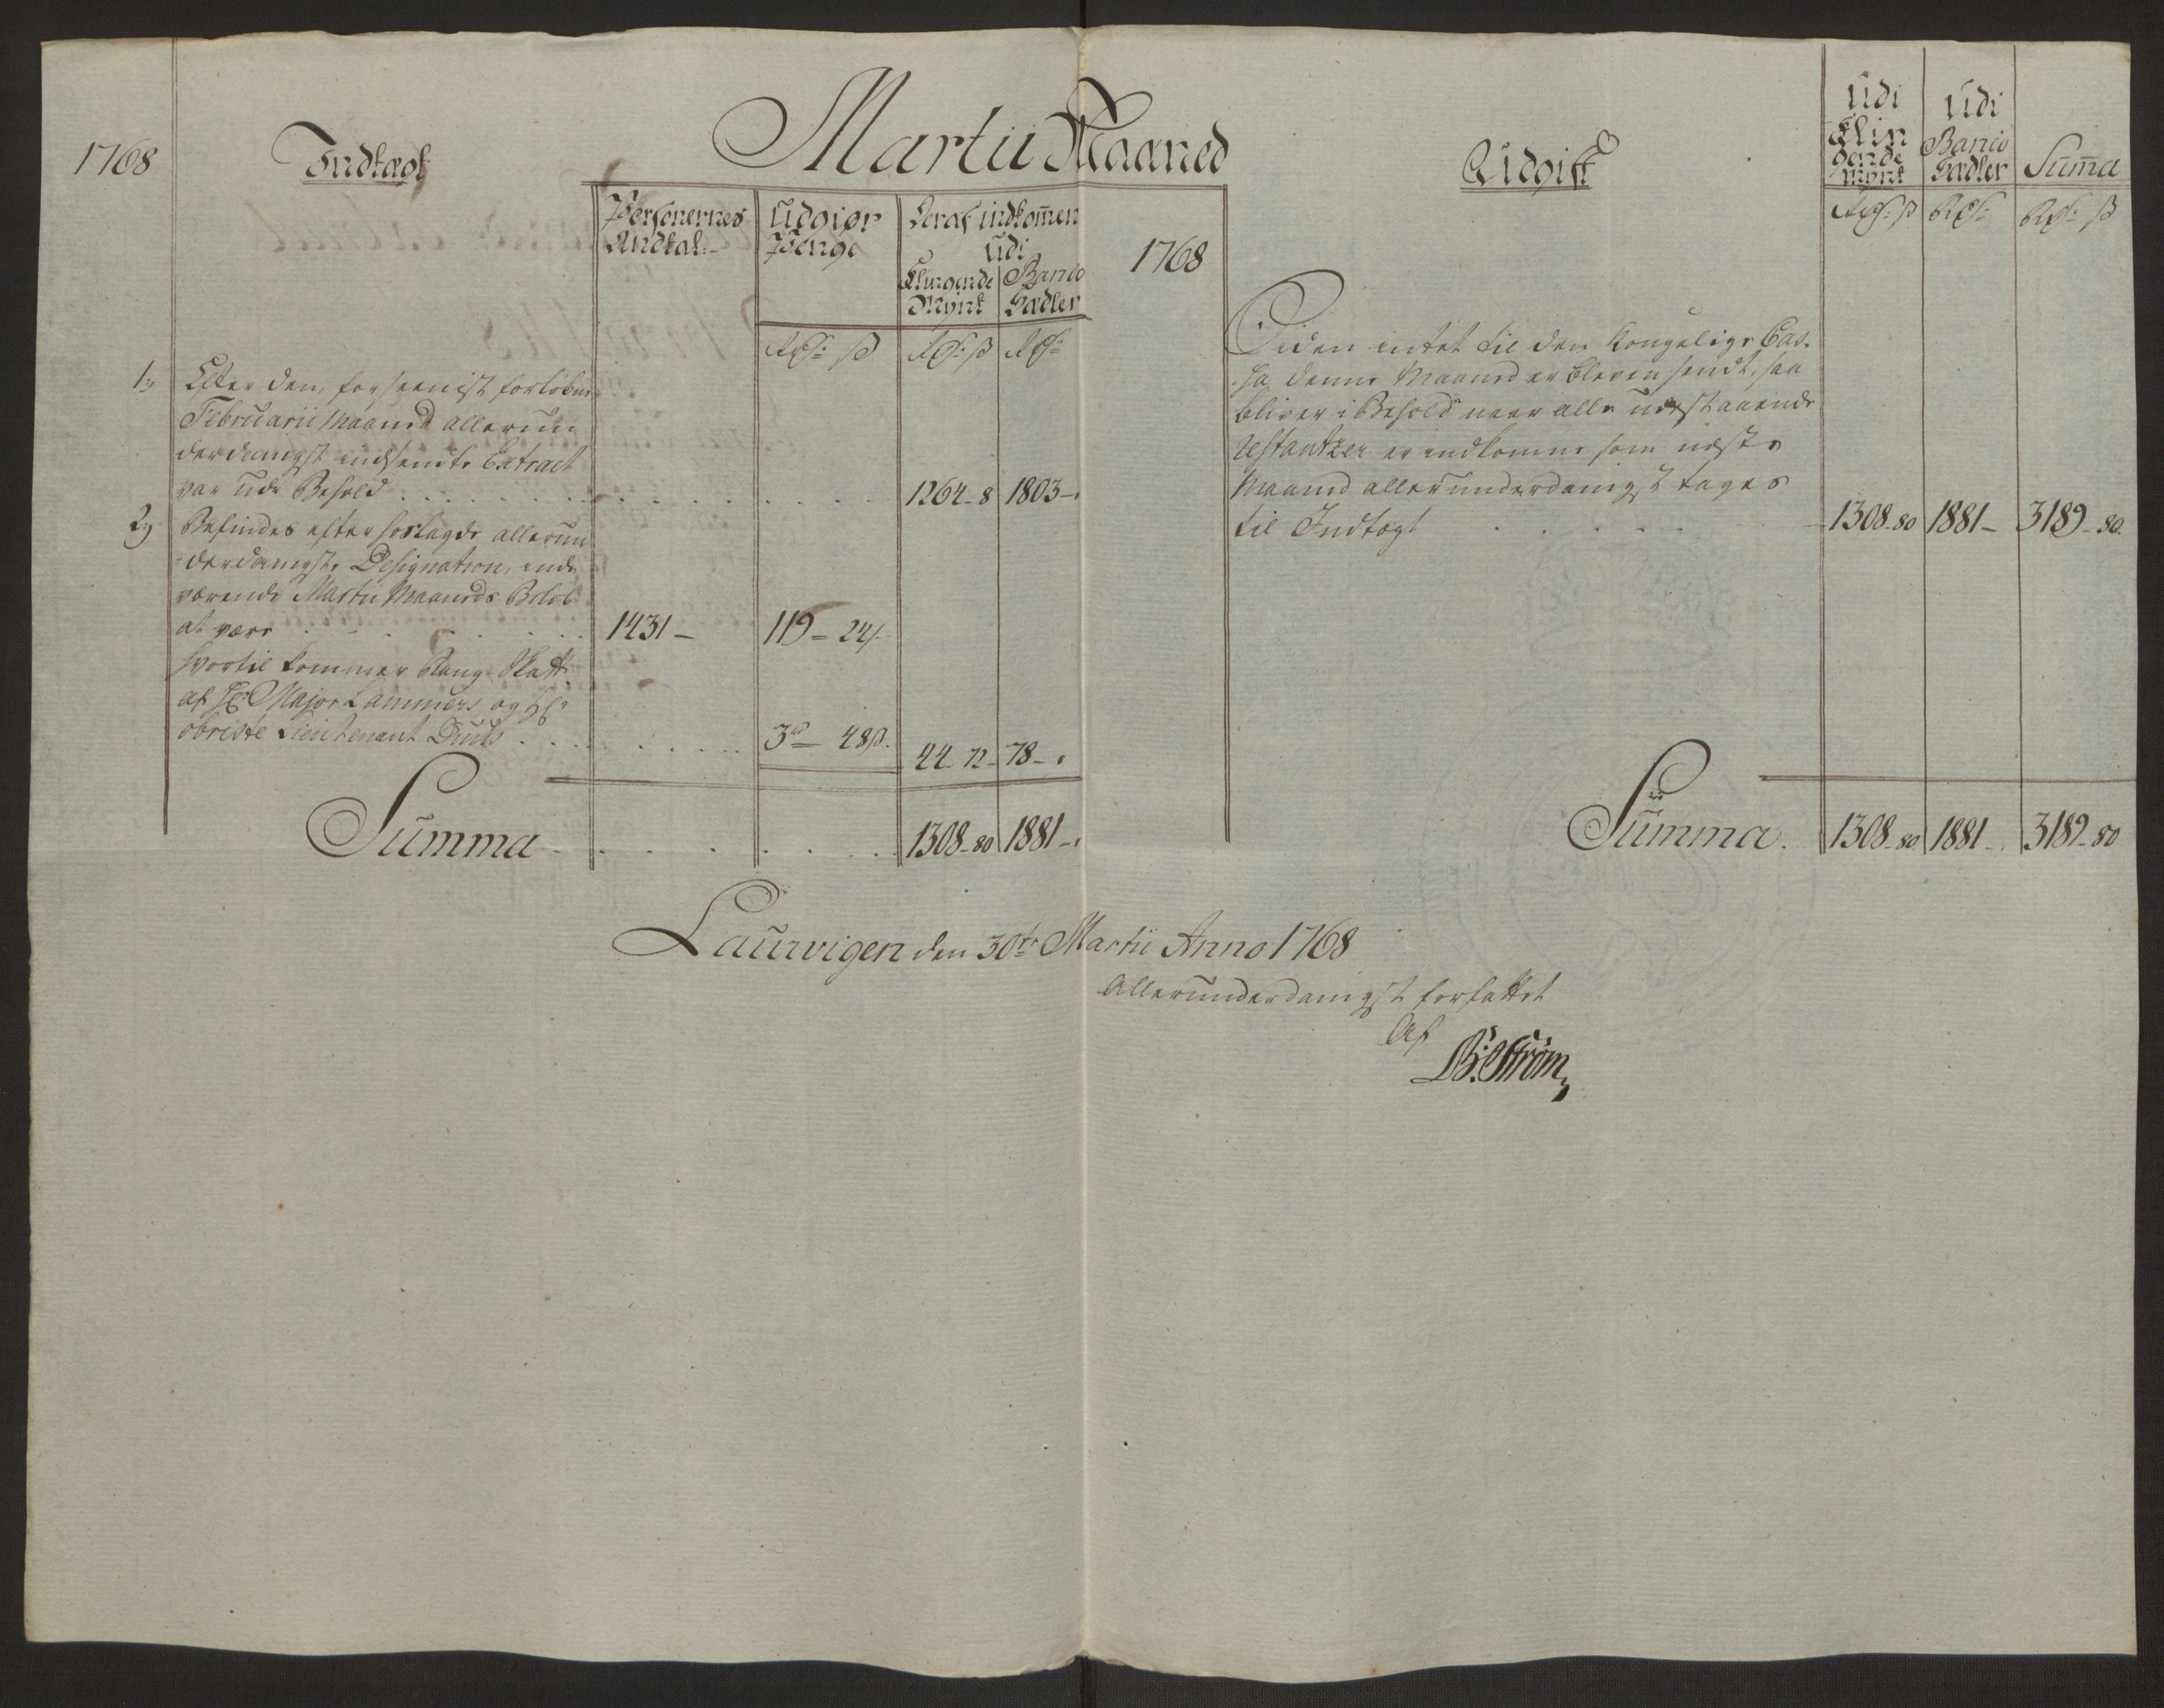 Martii Maaned
1768
Indtægt
Personernes
Andtal
Udgiør
Penge
Deraf indkom̅en
Udi
Klingende
Mynt
Banco
Sædler
Rdr: ß
Rdr: ß
Rdr:
1.)
Efter den, forhen sist forløbne
Februarii Maaned allerun
derdanigst indsendte Extract
var udi Behold . . . . . . . 1264-8 1803-.
2.)
Befindes efter hoslagde allerun
-derdanigste Designation, inde
værende Martii Maaneds Beløb
at være . . . . . 1431- 119- 24ß.
hvortil kommer Rang-Skatt
af Hr Major Lammers og Hr
obriste Lieutenant . . . . 3rd 48ß. 44-72- 78-.
Summa . . . . . 1308-80 1881-.
Udgift
Udi
Klin
gende
Mynt
Udi
Banco
Sædler
Sum̅a
Rdr: ß
Rdr:
Rdr: ß
1768
Siden intet til den Kongelige Cas-
sa denne Maaned er bleven sendt, saa
bliver i Behold naar alle udestaaende
restantzer er indkomne som neste
Maaned allerunderdanigst tages
til Indtægt . . . . . 1308-80 1881- 3189-80.
Summa. 1308-80 1881-. 3189-80
Laurvigen den 30te Martii Anno 1768
Allerunderdanigst forfattet
Af
B. Strøm